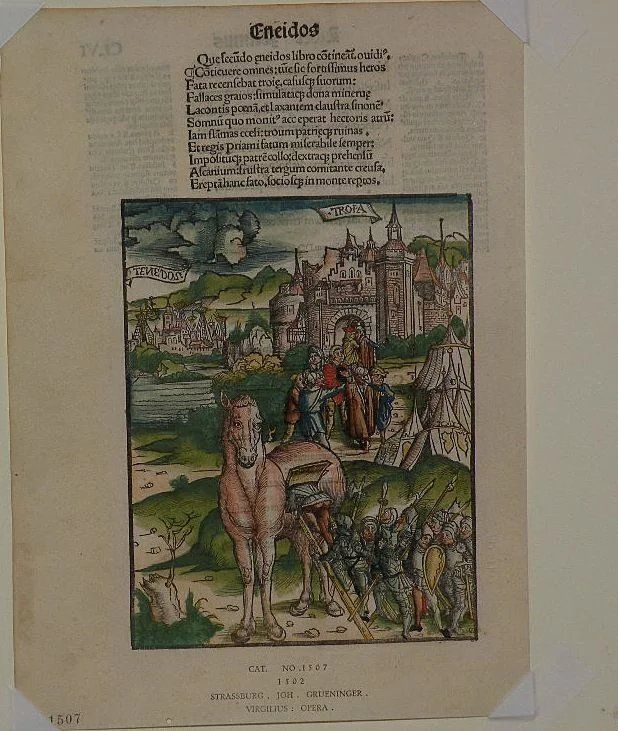 Eneidos
Que secũdo eneidos libro cõtineãt. ouidiꝰ.
¶Cõticuere omnes: tũc sic fortissimus heros
Fata recensebat troie, casusqꝫ suorum:
Fallaces graios: simulataqꝫ dona minerue
Lacontis poenã, et laxantem claustra sinonẽ
Somnũ quo monitꝰ acceperat hectoris atrũ:
Iam flãmas coeli: troum patrieqꝫ ruinas.
Et regis priami fatum miserabile semper:
Impositũqꝫ patrẽ collo: dextraqꝫ prehensũ
Ascanium: frustra tergum comitante creusa.
Ereptã hanc fato, sociosqꝫ in monte reptos.
TROIA
TENEDOS
CAT. NO. 1507
1502
STRASSBURG. JOH. GRUENINGER.
VIRGILIUS: OPERA.
1507